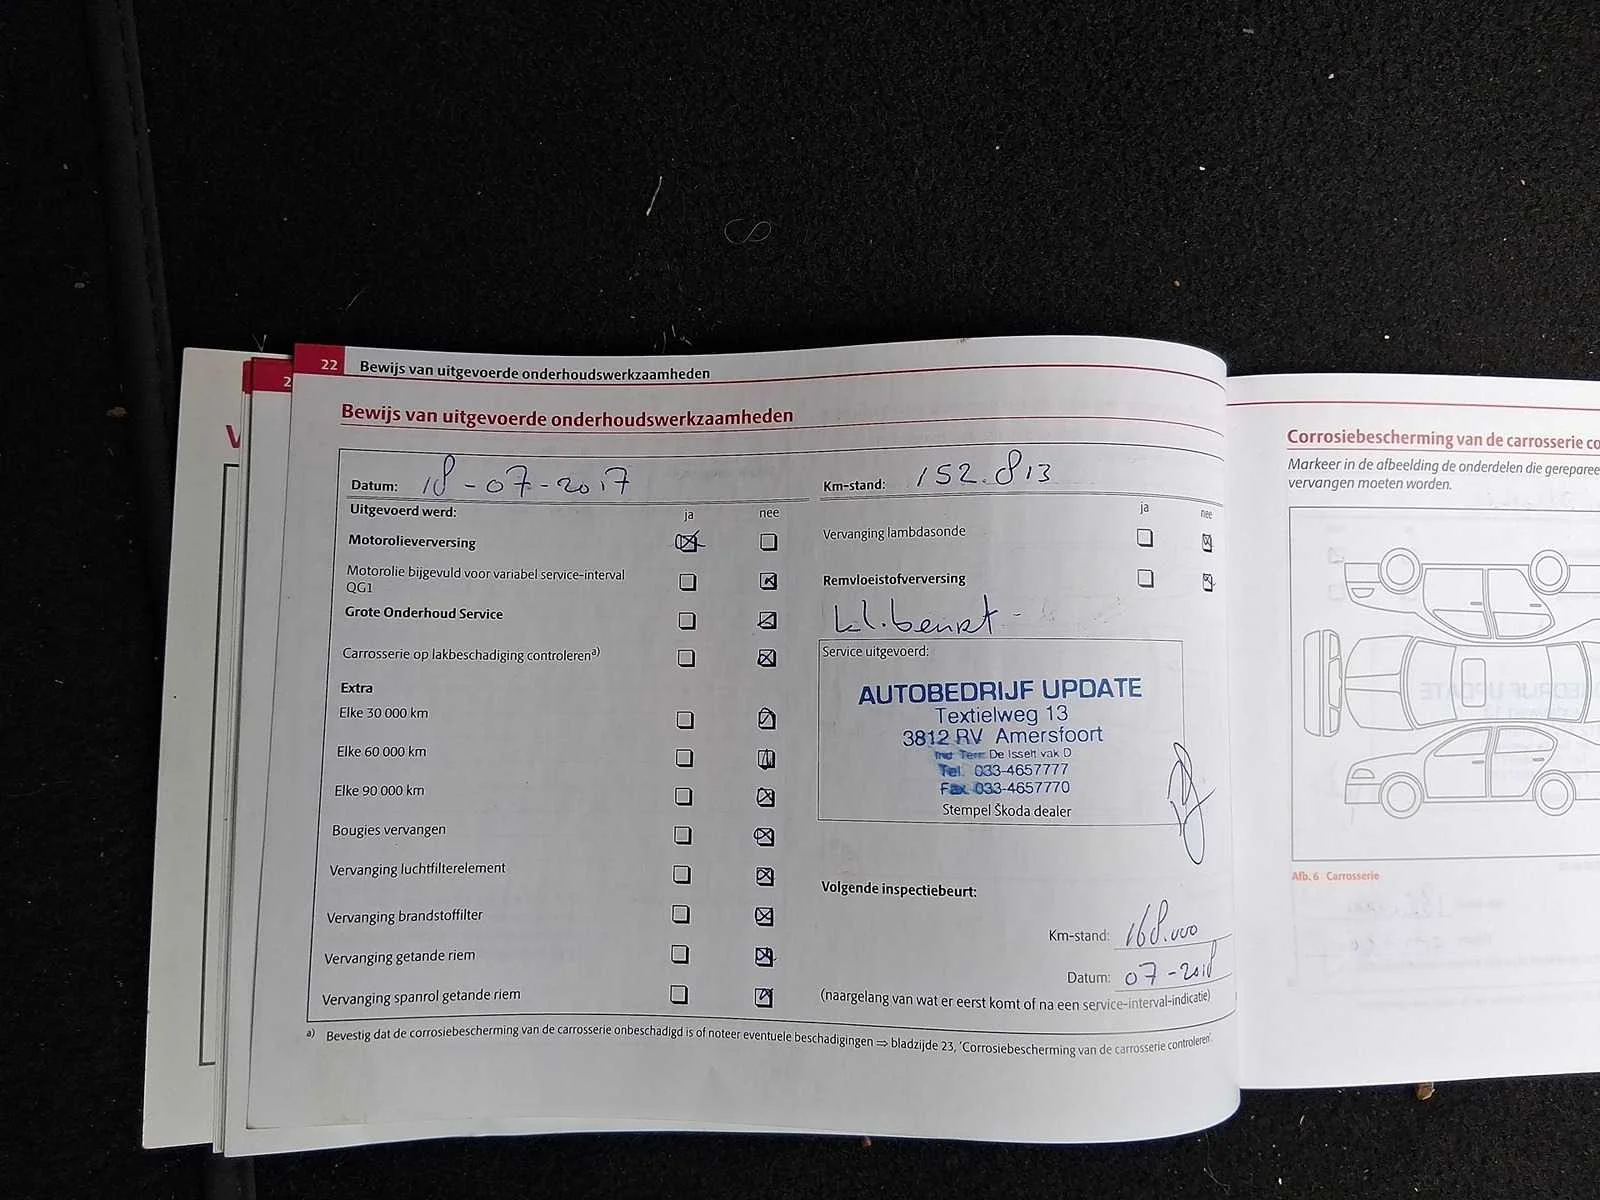 22 Bewijs van uitgevoerde onderhoudswerkzaamheden
2
V
Bewijs van uitgevoerde onderhoudswerkzaamheden
Datum: 18-07-2017
Km-stand: 152.813
Uitgevoerd werd: ja nee
Motorolieverversing
Motorolie bijgevuld voor variabel service-interval
QG1
Grote Onderhoud Service
Carrosserie op lakbeschadiging controleren a)
Extra
Elke 30 000 km
Elke 60 000 km
Elke 90 000 km
Bougies vervangen
Vervanging luchtfilterelement
Vervanging brandstoffilter
Vervanging getande riem
Vervanging spanrol getande riem
ja nee
Vervanging lambdasonde
Remvloeistofverversing
kl. beurt -
Service uitgevoerd:
AUTOBEDRIJF UPDATE
Textielweg 13
3812 RV Amersfoort
Ind Terr. De Isselt vak D
Tel. 033-4657777
Fax 033-4657770
Stempel Škoda dealer
Volgende inspectiebeurt:
Km-stand: 168.000
Datum: 07-2018
(naargelang van wat er eerst komt of na een service-interval-indicatie)
a) Bevestig dat de corrosiebescherming van de carrosserie onbeschadigd is of noteer eventuele beschadigingen ⇒ bladzijde 23, 'Corrosiebescherming van de carrosserie controleren'.
Corrosiebescherming van de carrosserie co
Markeer in de afbeelding de onderdelen die gereparee
vervangen moeten worden.
Afb. 6 Carrosserie